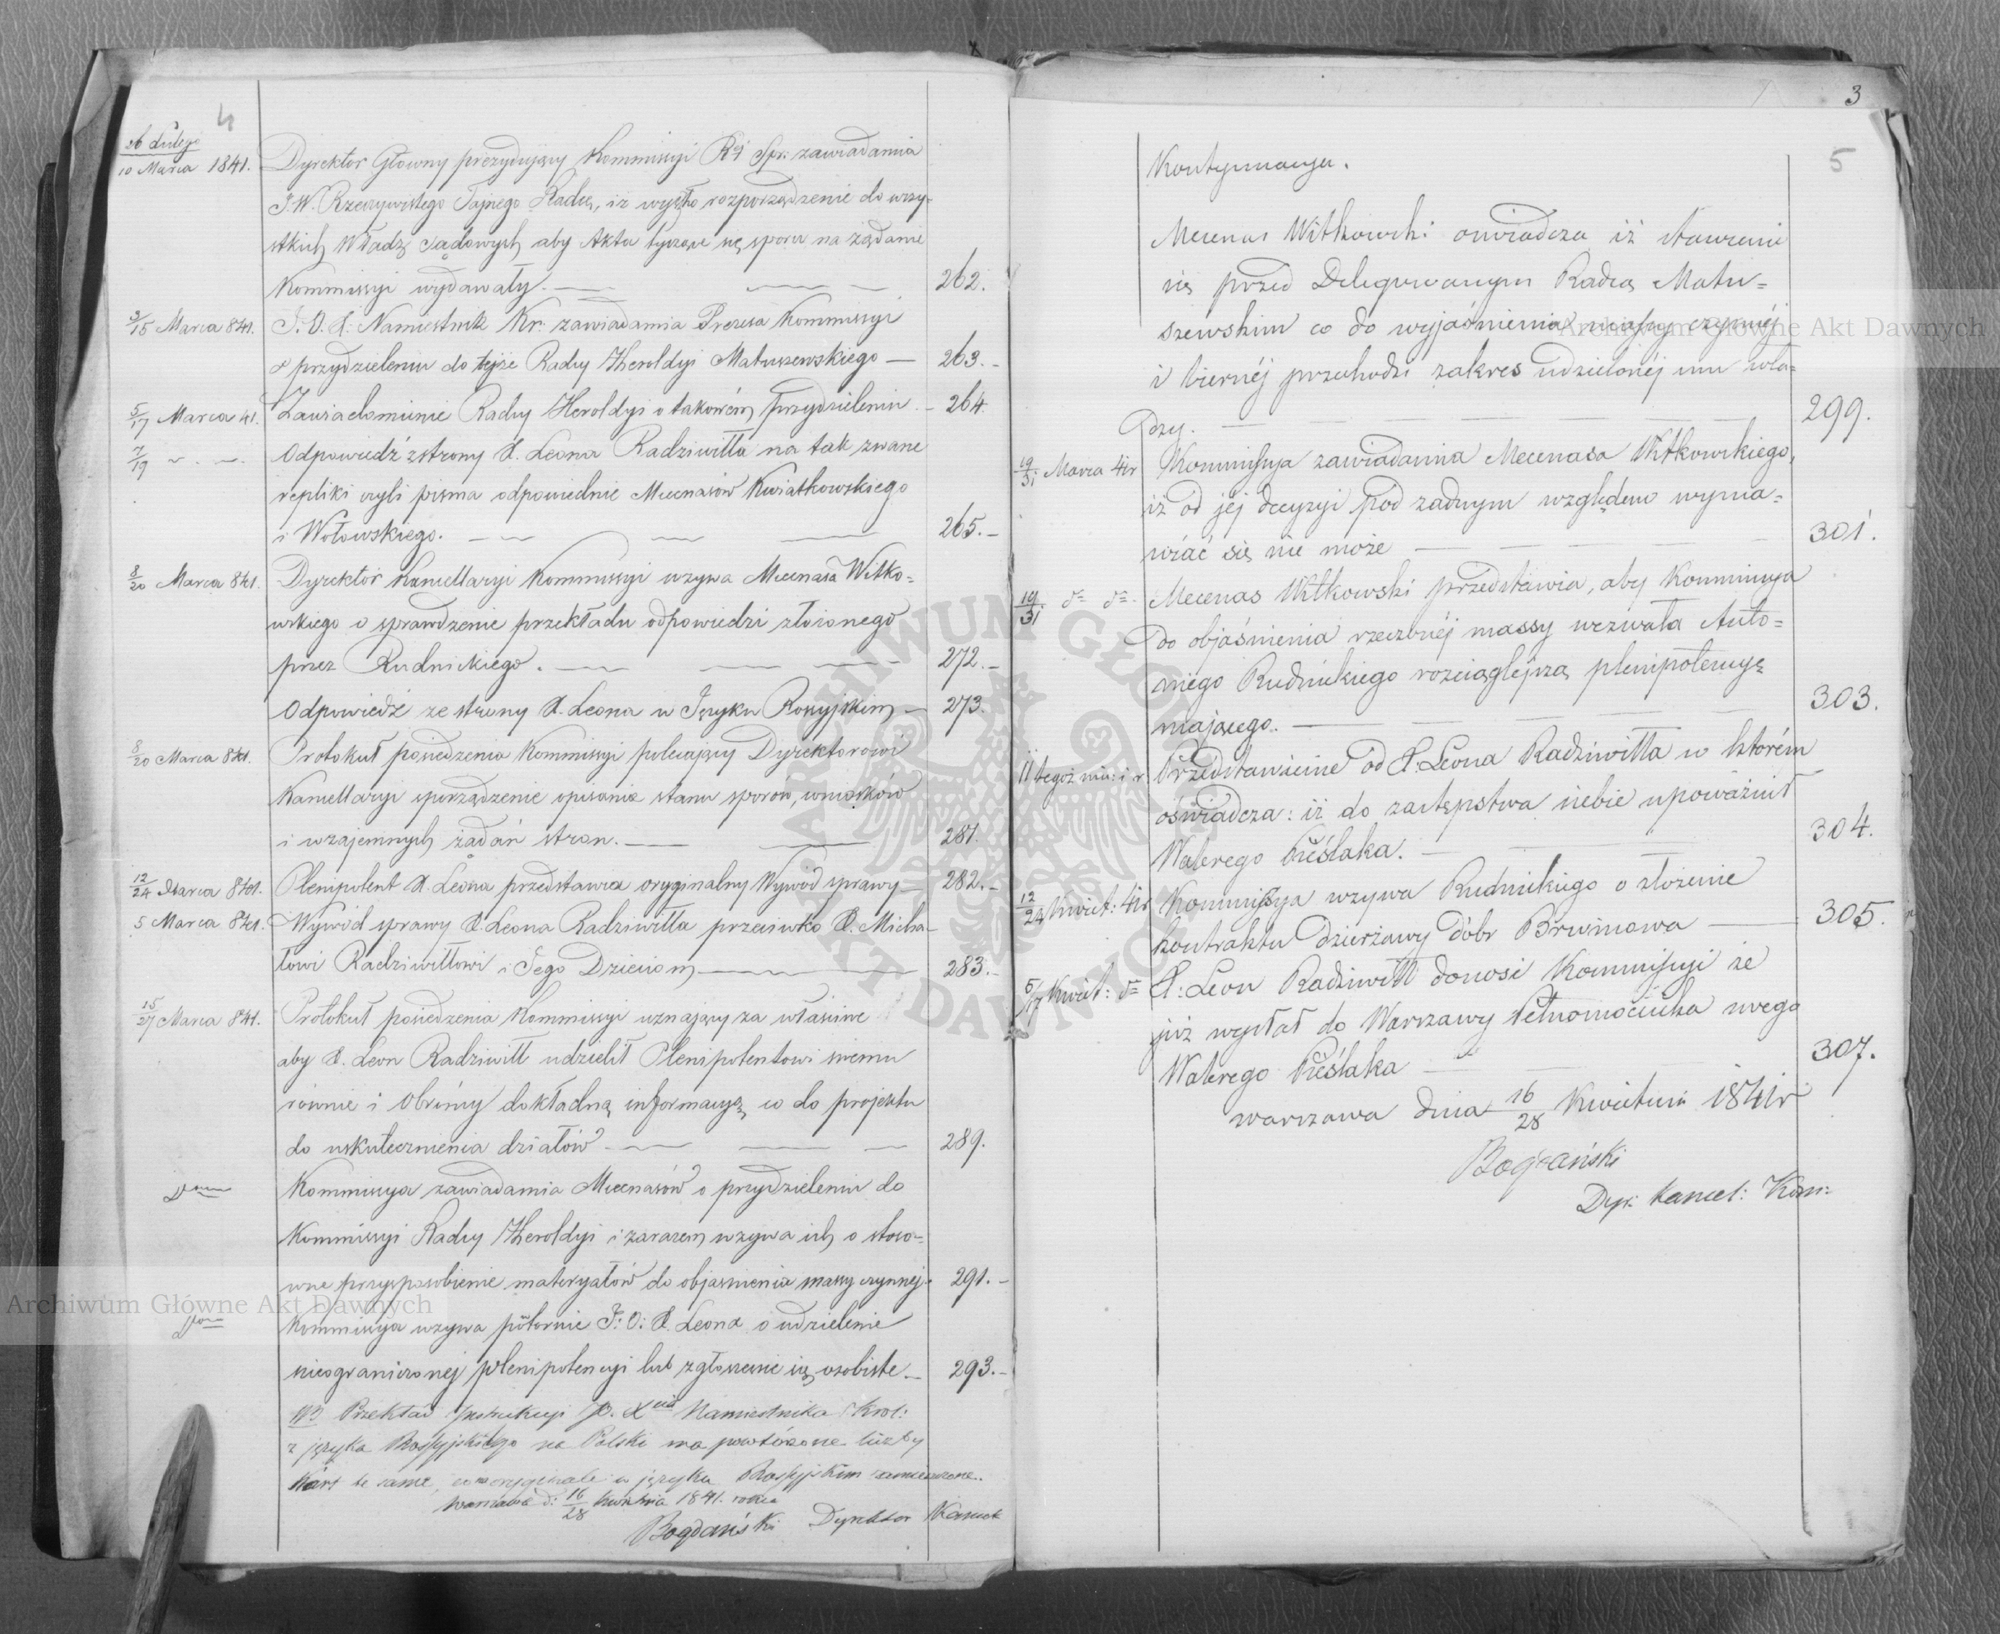 4
26 Lutego
10 Marca 1841.
Dyrektor Główny prezydujący Kommissyi Rej Spr: zawiadamia
J.W. Rzeczywistego Tajnego Radcę, iż rozporządzenie do wszy-
stkich Władz Sądowych aby Akta tyczące się sporu na żądanie
Kommissyi wydawały. 262.
3/15 Marca 841. J. O. X: Namiestnik Kr: zawiadamia Prezesa Kommissyi
o przydzieleniu do tejże Radcy Heroldyi Matuszewskiego — 263.-
5/17 Marca 41. Zawiadomienie Radcy Heroldyi o takowém przydzieleniu - 264.
7/19 Odpowiedź z strony X. Leona Radziwiłła na tak zwane
repliki czyli pisma odpowiednie Mecenasów Kwiatkowskiego
i Wołowskiego. 265.-
8/20 Marca 841. Dyrektor Kancellaryi Kommissyi wzywa Mecenasa Witko-
wskiego o sprawdzenie przekładu odpowiedzi złożonego
przez Rudnickiego. 272.-
Odpowiedź ze strony X. Leona w Języku Rossyjskim — 273.
8/20 Marca 841. Protokuł posiedzenia Kommissyi polecający Dyrektorowi
Kancellaryi sporządzenie opisania stanu sporów, wniosków
i wzajemnych żądań stron. 281.
12/24 Marca 841. Plenipotent X. Leona przedstawia oryginalny Wywód sprawy — 282.-
5 Marca 841. Wywód sprawy X. Leona Radziwiłła przeciwko X. Micha-
łowi Radziwiłłowi i Jego Dzieciom 283.-
15/27 Marca 841. Protokuł posiedzenia Kommissyi uznający za właściwe
aby X. Leon Radziwiłł udzielił Plenipotentowi swemu
równie i Obrońcy dokładną informacyę co do projektu
do uskutecznienia działów 289.
Kommissya zawiadamia Mecenasów o przydzieleniu do
Kommissyi Radcy Heroldyi i zarazem wzywa ich o stoso-
wne przysposobienie materyałów do objaśnienia massy czynnej. 291.-
Kommissya wzywa powtórnie J: O: X. Leona o udzielenie
nieograniczonej plenipotencyi lub zgłoszenie się osobiste — 293.-
NB Przekład Namiestnika Krol:
z języka Rossyjskiego na Polski ma powtórzone liczby
te same, w języku Rossyjskim zamieszczone.
Warszawa d: 16/28 Kwietnia 1841. roku
Bogdański Dyrektor Kancel
3
5
Kontynuacya.
Mecenas Witkowski oswiadcza iż stawienie
się przed Delegowanym Radcą Matu=
szewskim co do wyjaśnienia massy czynnéj
i biernéj przechodzi zakres udzielonéj mu wła=
dzy. 299.
19/31 Marca 41r Kommissya zawiadamia Mecenasa Witkowskiego,
iż od jéj decyzyi pod żadnym względem wyma=
wiać się nie może 301.
19/31 Mecenas Witkowski przedstawia, aby Kommissya
do objaśnienia rzeczonéj massy wezwała Anto=
niego Rudnickiego rozciąglejszą plenipotencyę
mającego. 303.
11 tegoż Przedstawienie od X: Leona Radziwiłła w którém
oświadcza: iż do zastępstwa siebie upoważnił
Walerego Cieślaka. 304.
12/24 Kwiet: 41r Kommissya wzywa Rudnickiego o złożenie
kontraktu Dzierżawy dóbr Brwinowa 305.
5/17 Kwiet: X: Leon Radziwiłł donosi Kommissyi że
już wysłał do Warszawy Pełnomocnika swego
Walerego Cieślaka 307.
Warszawa dnia 16/28 Kwietnia 1841r
Bogdański
Dyr: Kancel: Kom:
Archiwum Główne Akt Dawnych
Archiwum Główne Akt Dawnych
ARCHIWUM GŁÓWNE AKT DAWNYCH